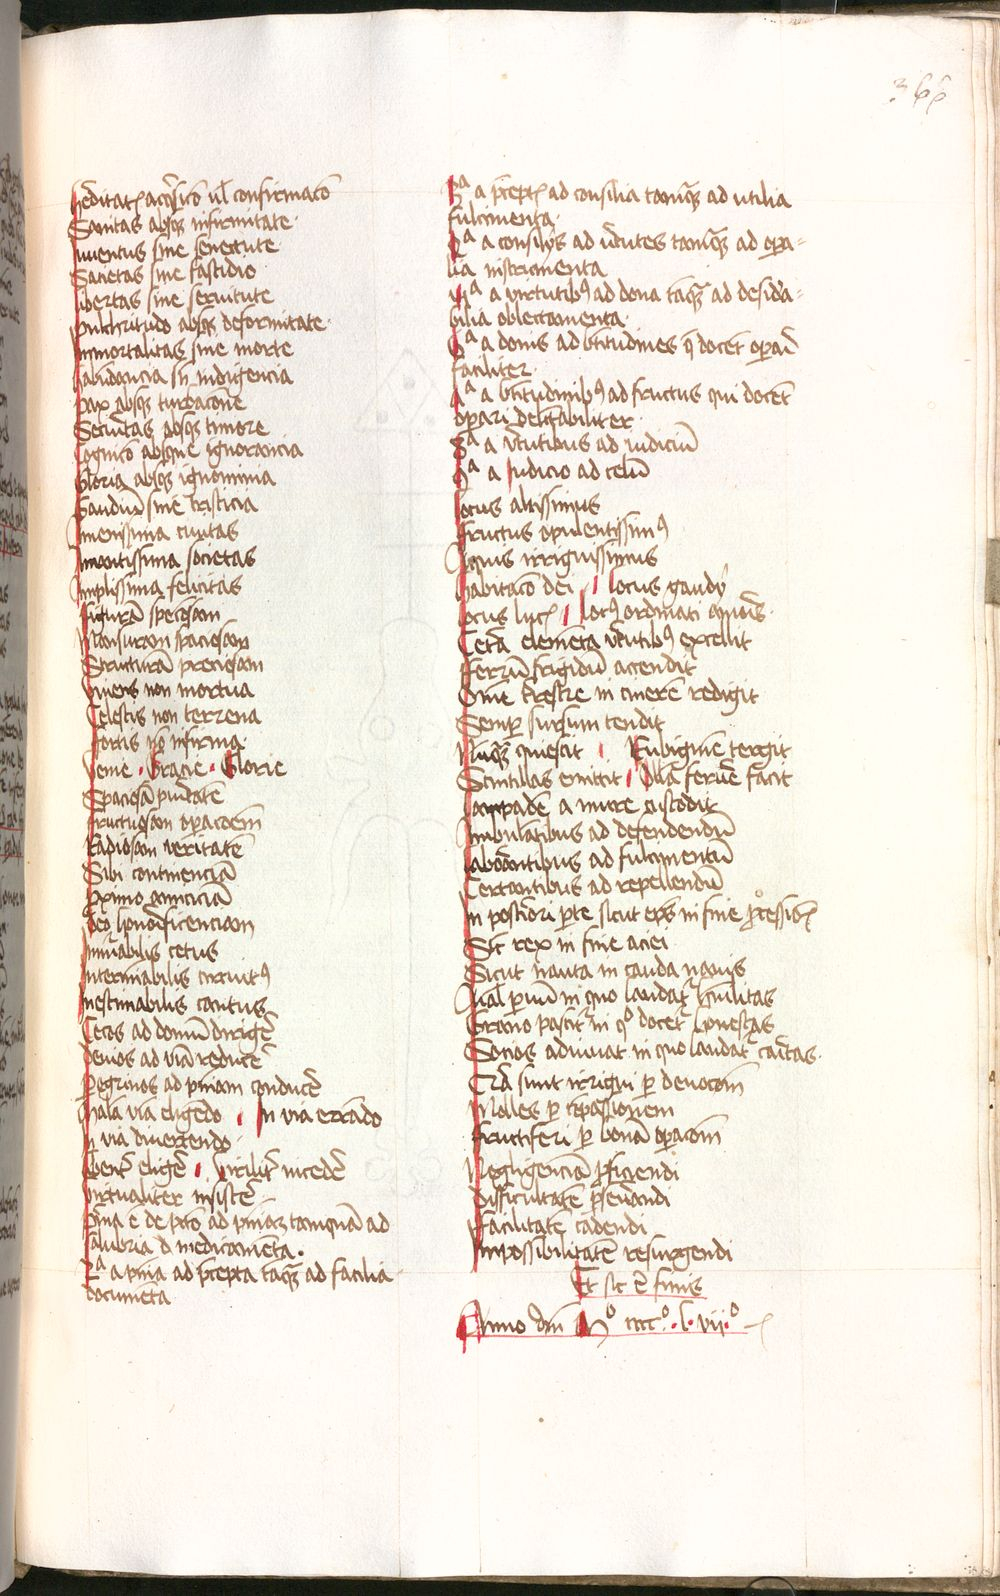 366
hereditatis acquisicio vel confirmacio
Sanitas absque infirmitate
Iuventus sine senectute
Sacietas sine fastidio
libertas sine seruitute
pulchritudo absque deformitate
Inmortalitas sine morte
habundancia sine indigencia
pax absque turbacione
Securitas absque timore
Cognicio absque ignorancia
Gloria absque ignominia
Gaudium sine tristicia
Amenissima ciuitas
Amantissima societas
Amplissima felicitas
figuram speciosam
Mansuram spaciosam
Structuram preciosam
viuens non mortua
Celestis non terrena
fortis non infirma
venie Gracie Glorie
Speciosam puritatem
fructuosam operacionem
Radiosam veritatem
Sibi continenciam
proximo amiciciam
deo honorificenciam
Innumerabilis cetus
Interminabilis circuitus
Inestimabilis cantus
Cecos ad domum dirigere
deuios ad viam reducere
peregrinos ad patriam conducere
mala via eligendo In via errando
In via diuertendo
viriliter incedere
virtualiter insistere
prima est de peccato ad penitenciam tamquam ad
salubria medicamenta
2a a penitencia ad precepta tamquam ad facilia
documenta
3a a preceptis ad consilia tamquam ad utilia
fulcimenta
4a a consilijs ad virtutes tamquam ad opera=
lia instrumenta
5a a virtutibus ad dona tamquam ad desidera=
bilia oblectamenta
6a a donis ad beatitudines que docent operari
faciliter
7a a beatitudinibus ad fructus qui docent
operari delectabiliter
8a a virtutibus ad iudicium
9a a Iudicio ad celum
locus altissimus
fructus opulentissimus
Aquis irriguissimus
habitacio dei locus gaudij
locus lucis locus ordinati amoris
Cetera elementa virtutibus excellit
fferrum frigidum accendit
Omne terrestre in cinerem redigit
Semper sursum tendit
Nunquam quiescit Rubiginem tergit
Scintillas emittit Olla feruere facit
lampadem a murre custodit
Ambulantibus ad defendendum
laborantibus ad fulcimentum
Certantibus ad repellendum
In posteriori parte sicut episcopus in fine processionis
Sic rex in fine aciei
Sicut nauta in cauda nauis
in quo laudatur humilitas
Grano pascitur in quo docetur honestas
Socios adiuuat in quo laudatur caritas
Corda sunt irrigui per deuocionem
Molles per compassionem
fructiferi per bonam operacionem
Negligenciam proficiendi
difficultatem perseuerandi
ffacilitatem cadendi
Impossibilitatem resurgendi
Et sic est finis
Anno domini Mo cccco l vijo